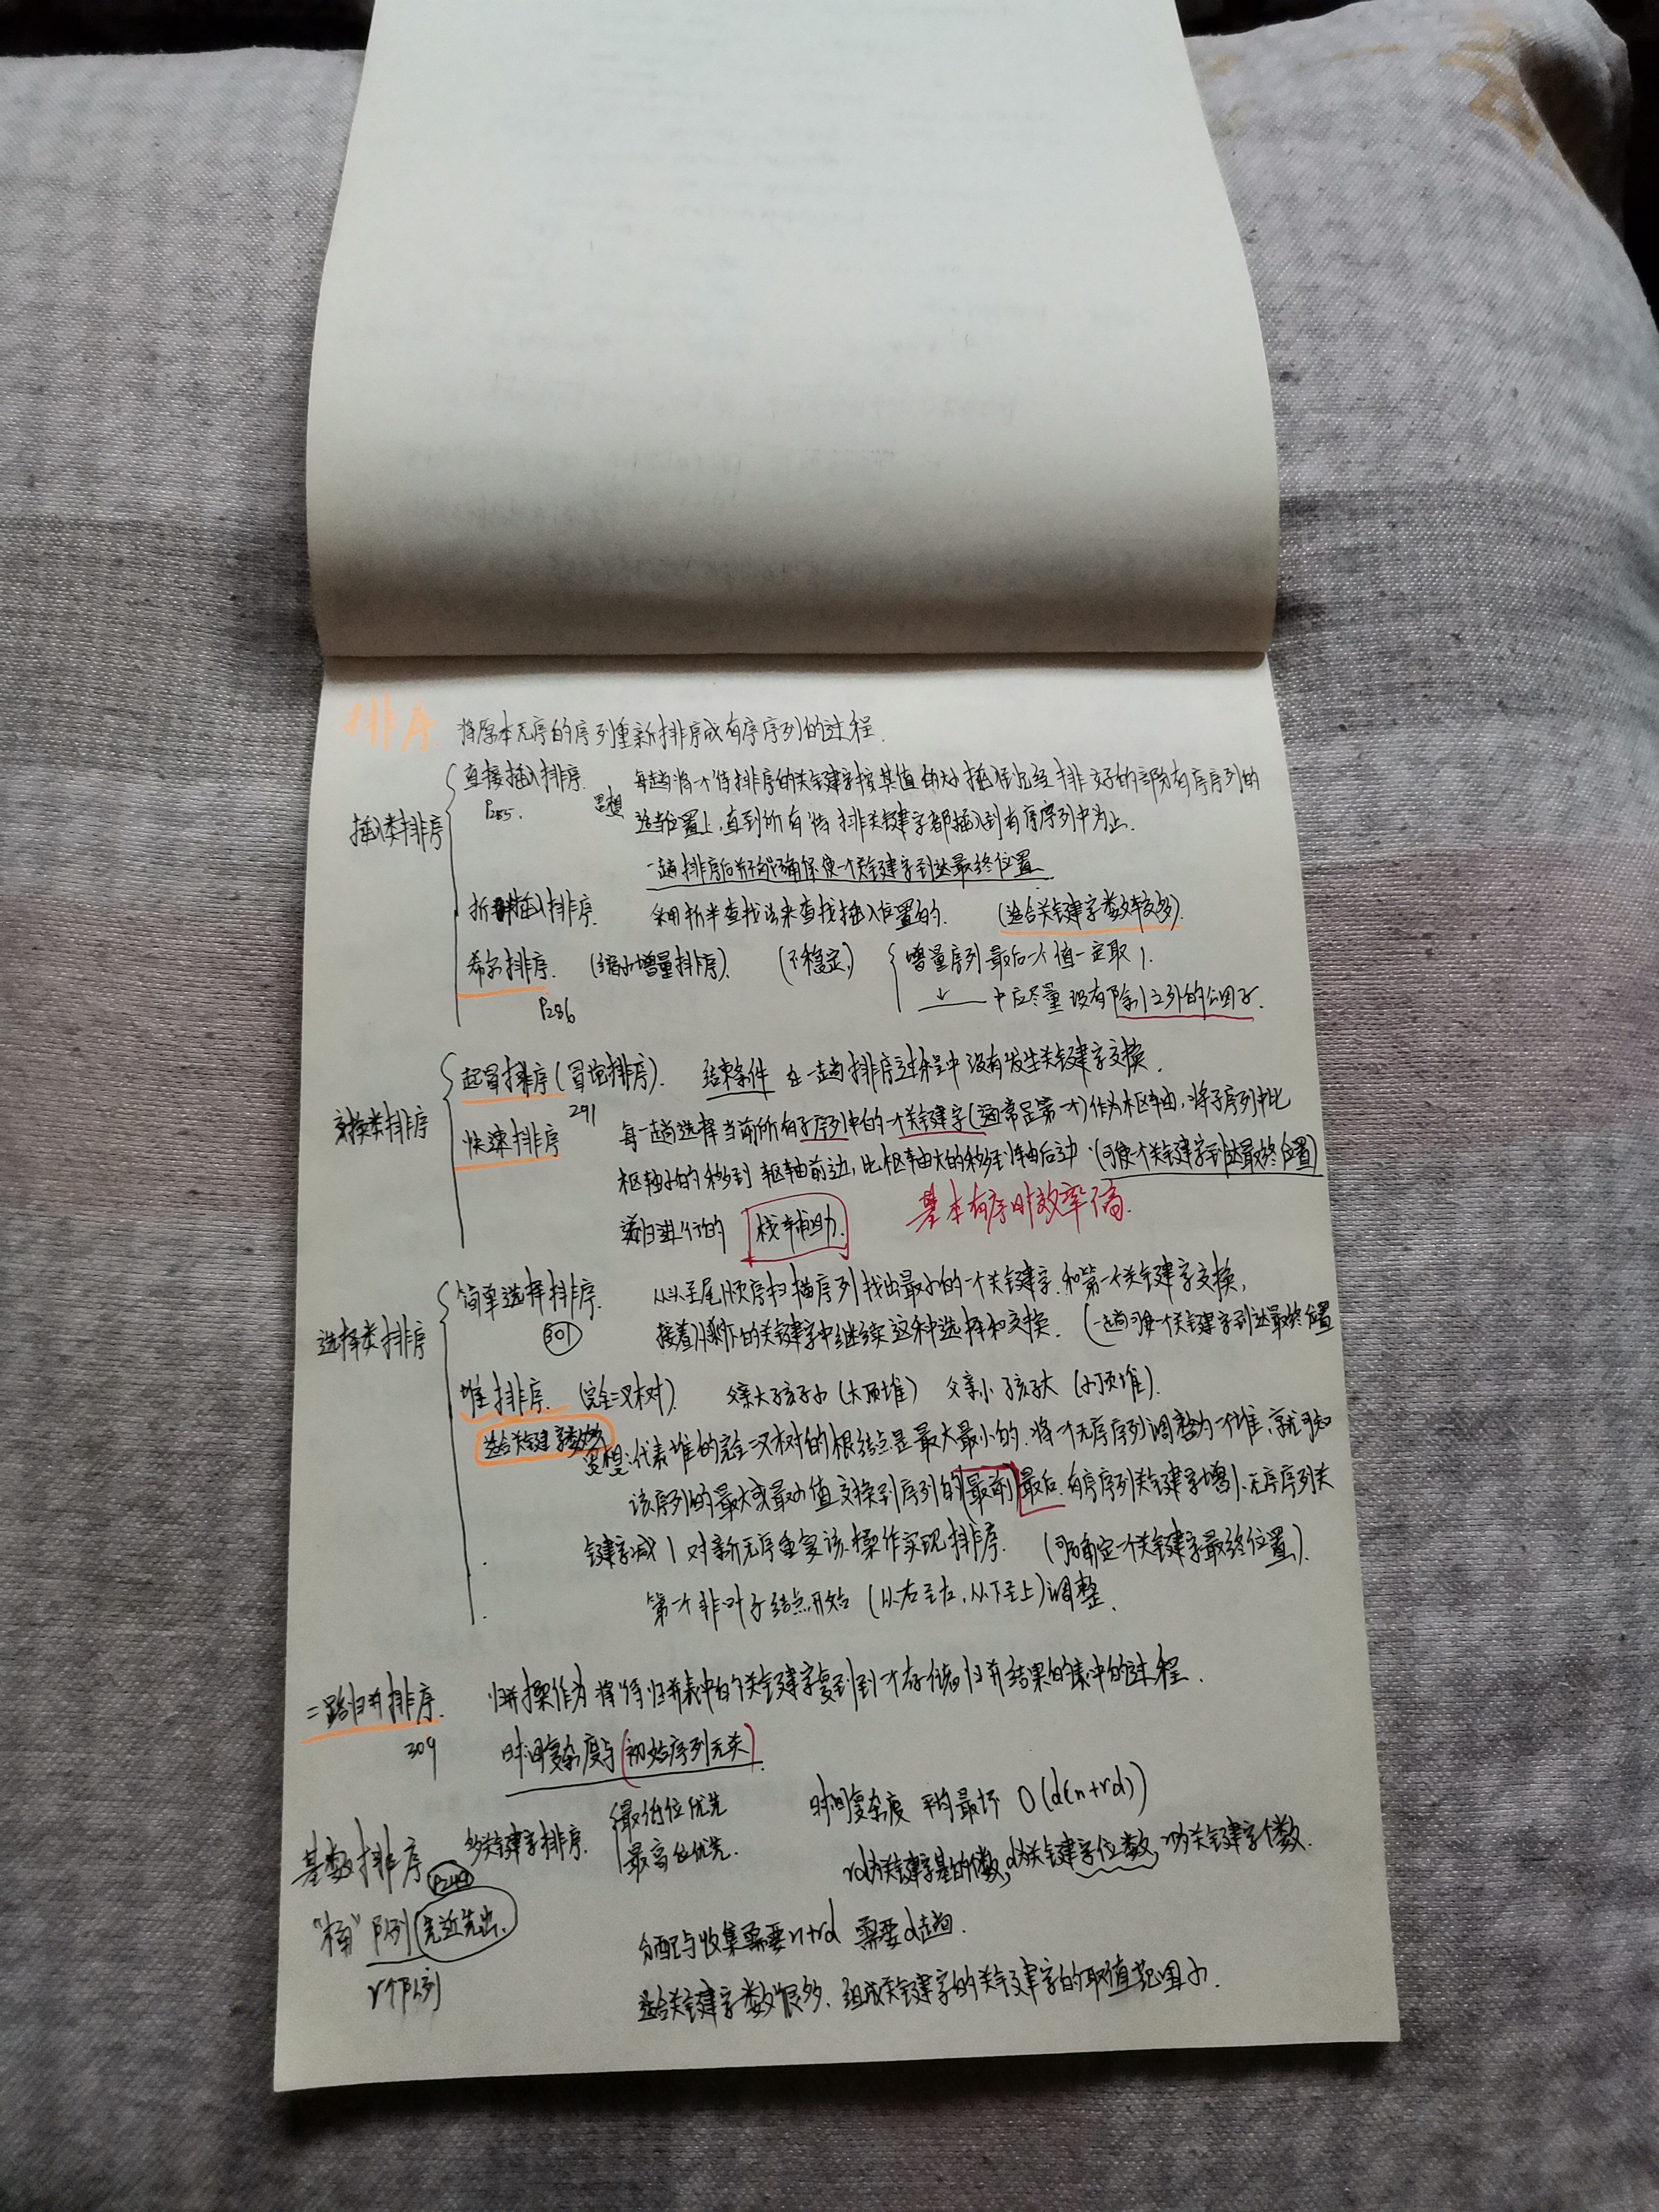 排序 将原本无序的序列重新排序成有序序列的过程.
插入类排序
直接插入排序. P285.
思想 每趟将一个待排序的关键字按其值的大小插到已经排好的部分有序序列的
适当位置上,直到所有待排关键字都插入到有序序列中为止.
一趟排序后并不能确保使一个关键字到达最终位置
折半插入排序. 采用折半查找法来查找插入位置的. (适合关键字数较多).
希尔排序. (缩小增量排序). (不稳定,) 增量序列最后一个值一定取1.
P286 ↓ 中应尽量没有除1之外的公因子.
交换类排序
起冒排序(冒泡排序). 结束条件 在一趟排序过程中没有发生关键字交换.
291
快速排序 每一趟选择当前所有子序列中的一个关键字(通常是第一个)作为枢轴,将子序列中比
枢轴小的移到枢轴前边,比枢轴大的移到枢轴后边.(可使一个关键字到达最终位置)
递归进行的 栈辅助. 基本有序时效率不高.
选择类排序
简单选择排序. 从头至尾顺序扫描序列找出最小的一个关键字.和第一个关键字交换,
301 接着从剩下的关键字中继续这种选择和交换. (一趟可使一个关键字到达最终位置
堆排序. (完全二叉树). 父亲大孩子小(大顶堆) 父亲小孩子大(小顶堆).
适合关键字数多
思想:代表堆的完全二叉树的根结点是最大最小的.将一个无序序列调整为一个堆,就可知
该序列的最大或最小值交换到序列的最前最后.有序序列关键字增1.无序序列关
键字减1对新无序重复该操作实现排序. (可确定一个关键字最终位置).
第一个非叶子结点开始(从右至左,从下至上)调整.
二路归并排序. 归并操作为将待归并表中的关键字复到到一个存储归并结果的表中的过程.
309 时间复杂度与(初始序列无关).
基数排序 多关键字排序. 最低位优先 时间复杂度 平均最坏 O(d(n+rd))
最高位优先. rd为关键字基的个数,d为关键字位数,n为关键字个数.
"桶" 队列(先近先出. 分配与收集需要n+rd 需要d趟.
r个队列 适合关键字数很多.组成关键字的关键字的取值范围小.